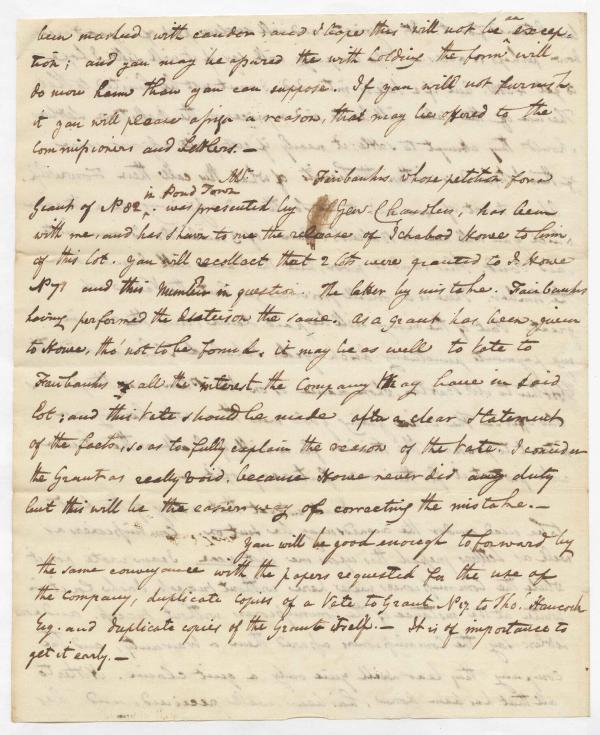 been marked with candor; and I hope this will not be an excep-
tion; and you may be assured the with holding the form will
do more harm than you can suppose. If you will not furnish
it you will please assign a reason, that may be offered to the
commissioners and Settlers. —
Mr. Fairbanks whose petition for a
Grant of No 82 in Pond Town was presented by Genl Chandler, has been
with me, and has shown to me the release of Ichabod Howe to him,
of this lot. you will recollect that 2 lots were granted to I. Howe
No 78 and this number in question. The latter by mistake. Fairbanks
having performed the duties on the same. As a grant has been given
to Howe, tho' not to be found, it may be as well to Vote to
Fairbanks all the interest the Company may have in said
lot; and this Vote should be made after a clear statement
of the facts, so as to fully explain the reason of the Vote. I consider
the Grant as really void, because Howe never did any duty
but this will be the easier way of correcting the mistake. —
You will be good enough to forward by
the same conveyance with the papers requested for the use of
the Company, duplicate copies of a Vote to Grant No 17 to Tho. Hancock
Esq. and duplicate copies of the Grant itself. — It is of importance to
get it early. —